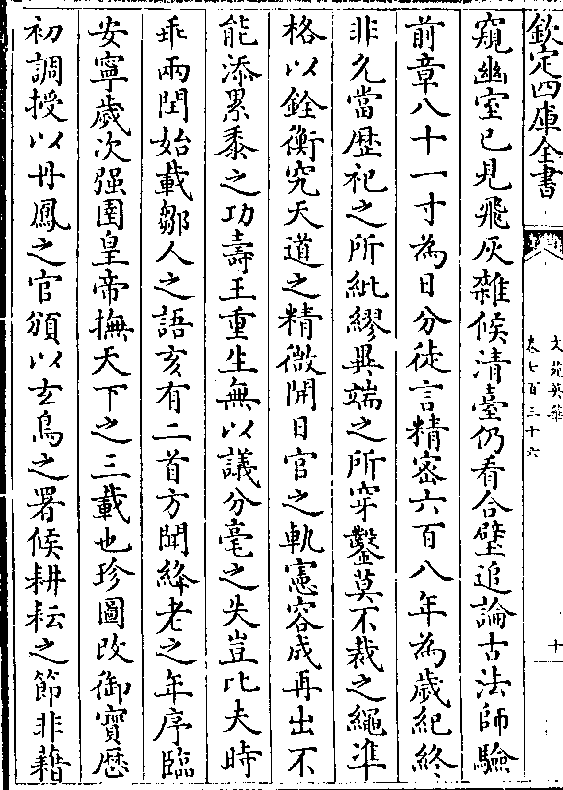 欽定四庫全書
文苑英華
卷七百三十六
十
窺幽室已見飛灰雜候清臺仍看合璧追論古法師驗
前章八十一寸為日分徒言精密六百八年為歲紀終
非允當歴祀之所紕繆異端之所穿鑿莫不裁之繩準
格以銓衡究天道之精微開日官之軌憲容成再出不
能添累黍之功壽王重生無以議分毫之失豈比夫時
乖兩閏始載鄒人之語亥有二首方聞絳老之年序臨
安寧歲次强圉皇帝撫天下之三載也珍圖改御寶歴
初調授以丹鳳之官頒以玄鳥之署候耕耘之節非藉